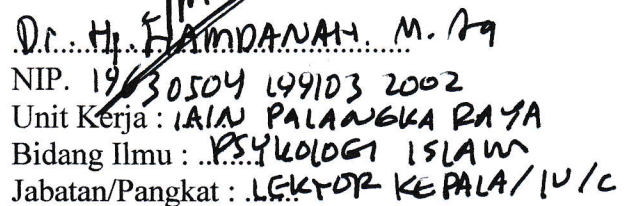 Dr. Hj. HAMDANAH. M. Ag
NIP. 19630504 199103 2002
Unit Kerja : IAIN PALANGKA RAYA
Bidang Ilmu : PSYKOLOGI ISLAM
Jabatan/Pangkat : LEKTOR KEPALA/IV/C